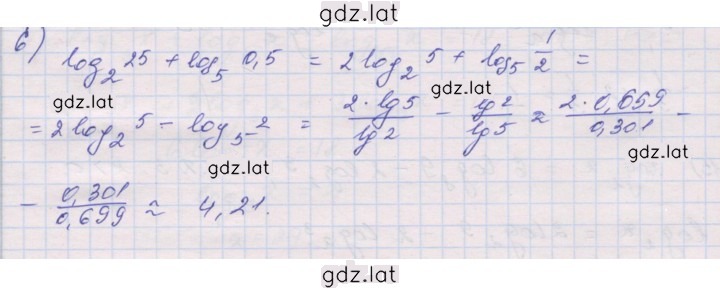 gdz.lat
6) log₂ 25 + log₅ 0,5 = 2 log₂ 5 + log₅ 1/2 =
gdz.lat gdz.lat
= 2 log₂ 5 - log₅ 2 = 2·lg5/lg2 - lg2/lg5 ≈ 2·0,659/0,301 -
gdz.lat gdz.lat
- 0,301/0,699 ≈ 4,21.
gdz.lat